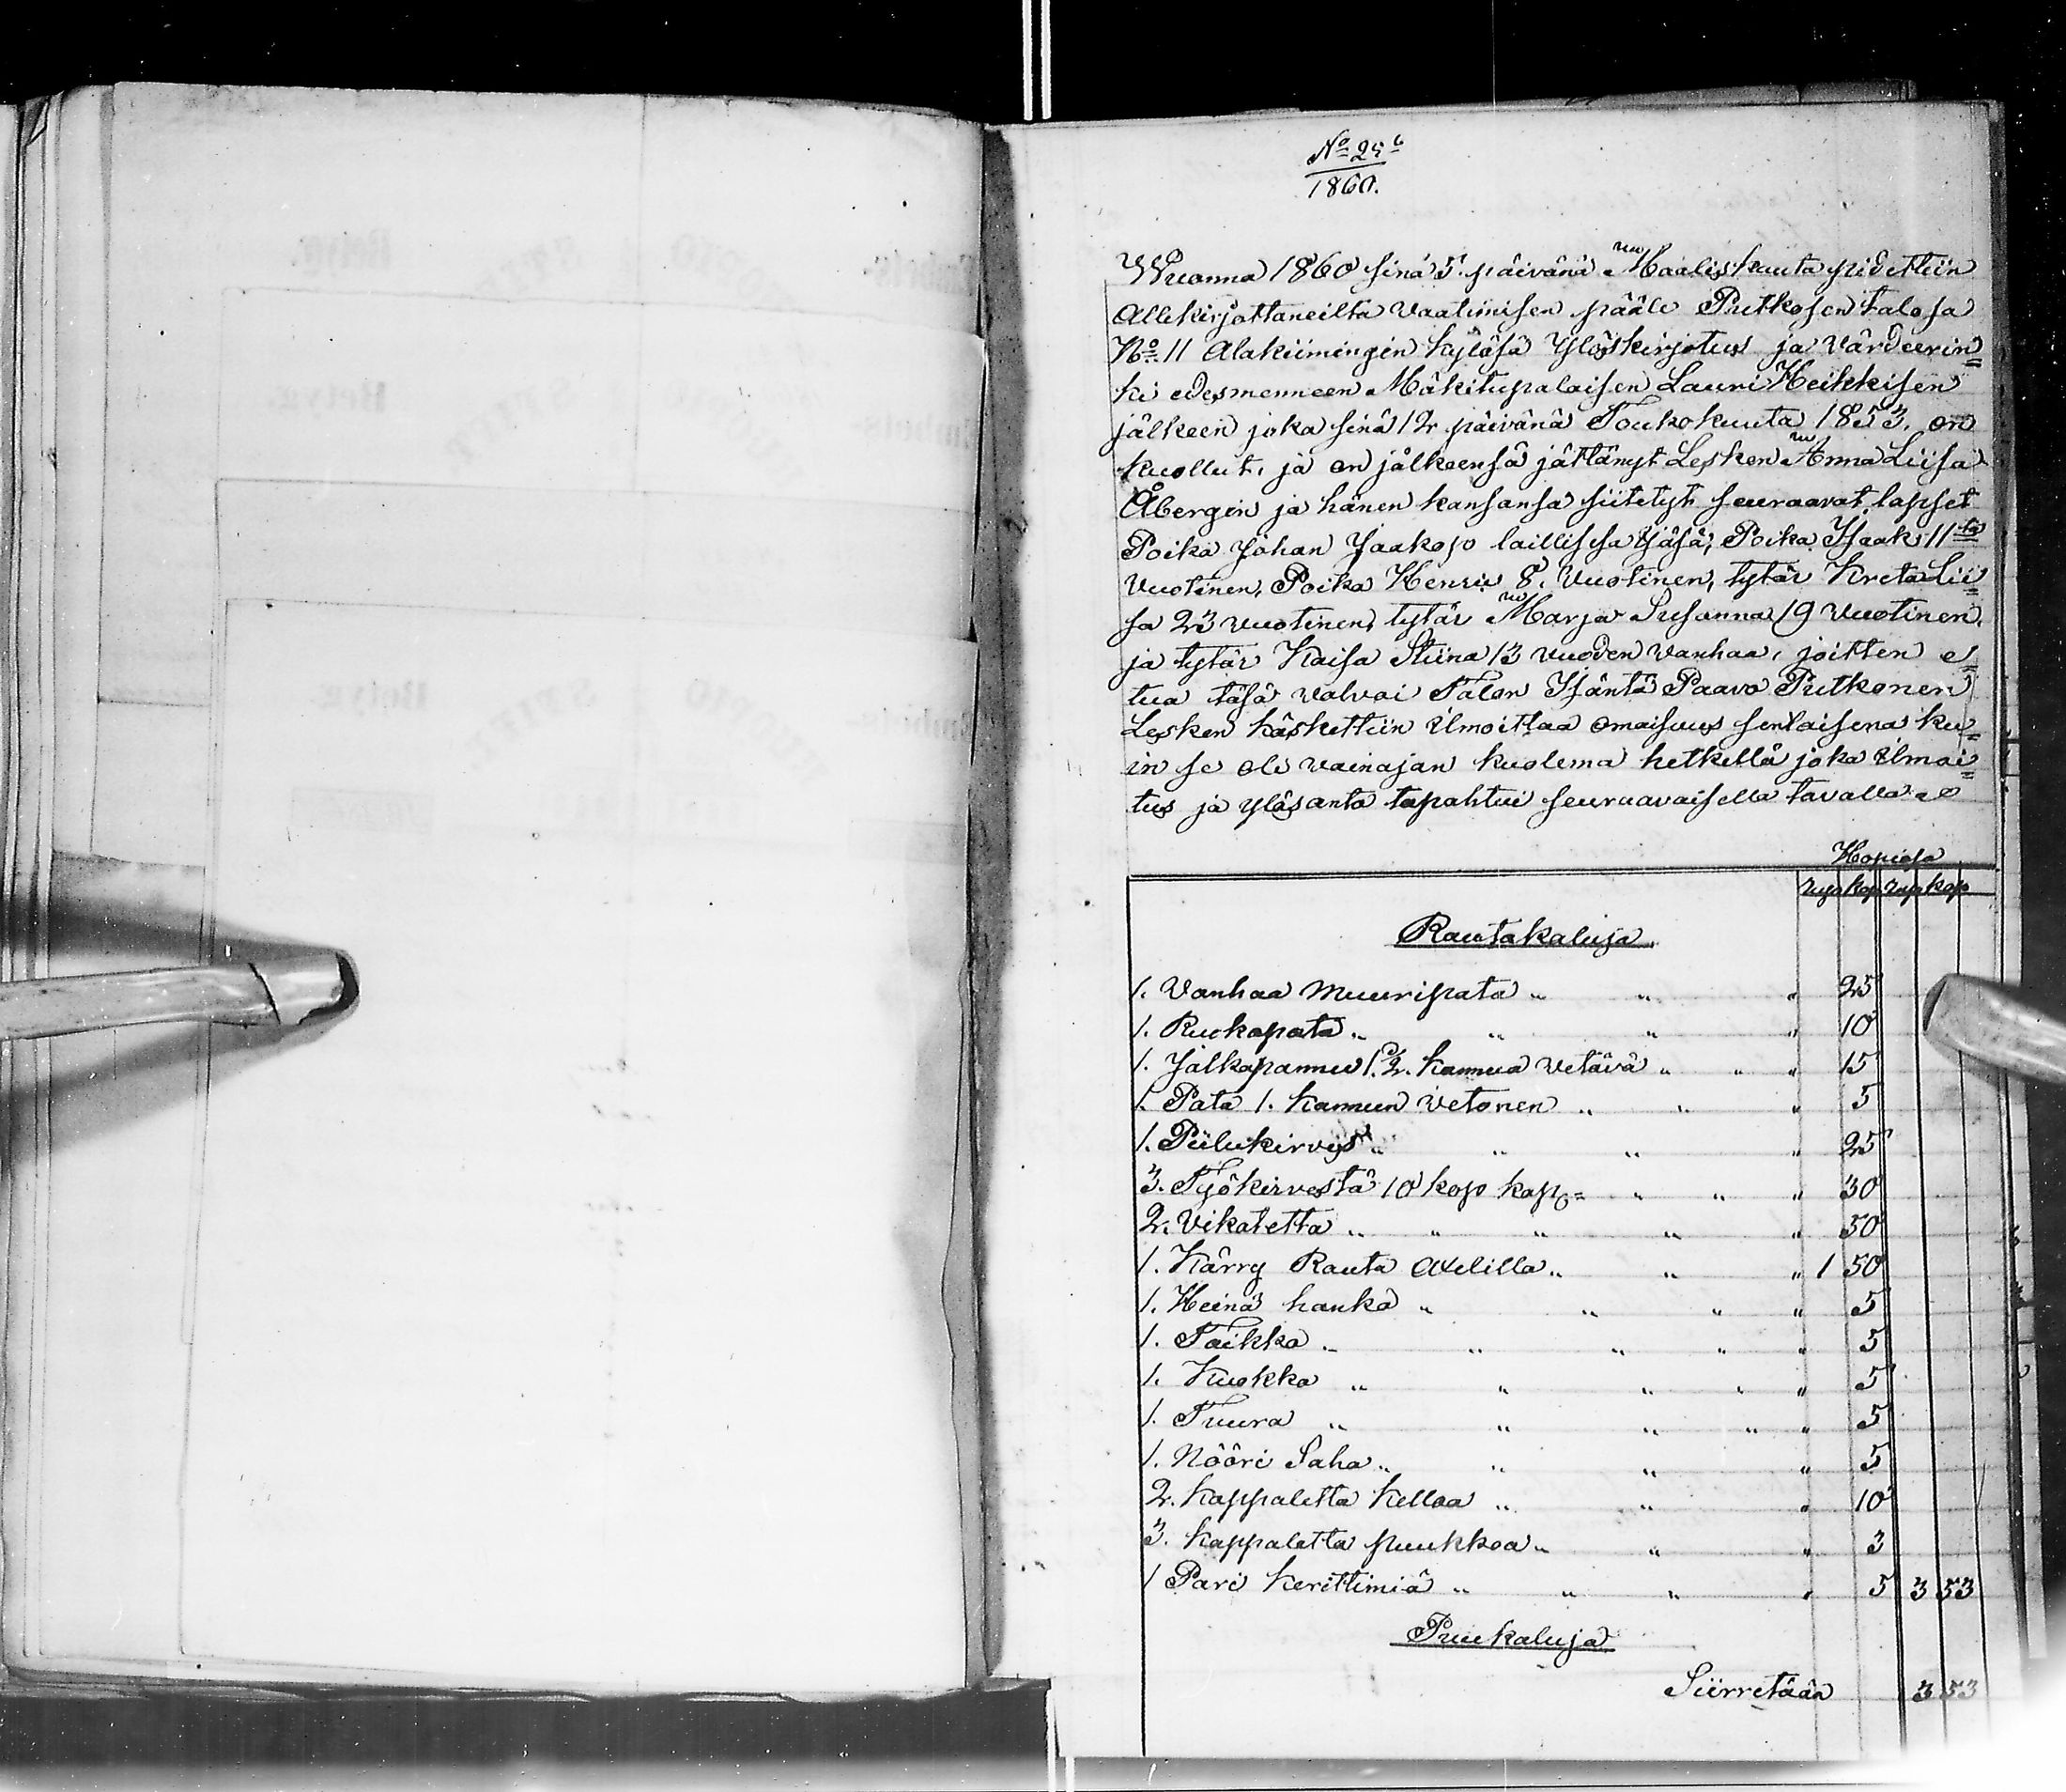 No 25 6
1860.
Wuonna 1860 sinä 5 päivänä Maaliskuuta pidettiin
Allekirjottaneilta vaatimisen pääle Putkosen talosa
No 11 Alakiimingin kyläsä Ylöskirjotus ja värdeerin=
ki edesmenneen Mäkitupalaisen Lauri Heikkisen
jälkeen joka sinä 12 päivänä Toukokuuta 1853. on
kuollut, ja on jälkeensä jättänyt Lesken Anna Liisa
Åbergin ja hänen kansansa siitetyt seuraavat lapset
Poika Johan Jaakop laillisesa Ijäsä, Poika Isaak 11ta
vuotinen, Poika Henrik 8. vuotinen, tytär Kreta Lii=
sa 23 vuotinen, tytär Marja Susanna 19 vuotinen.
ja tytär Kaisa Stiina 13 vuoden vanhaa, joitten e=
tua täsä valvoi Talon Isäntä Paavo Putkonen
Lesken käskettiin ilmoittaa omaisuus senlaisena ku=
in se oli vainajan kuolema hetkellä joka ilmoi=
tus ja ylösanto tapahtui seuraavaisella tavalla
Hopiasa
rup kop rup kop
Rautakaluja
1. Vanhaa Muuripata " " " 25
1. Ruokapata " " " " 10
1. Jalkapannu 1 1/2. kannua vetävä " " " 15
1. Pata 1. kannun vetonen " " " 5
1. Piilukirves " " " " 25
3. Työkirvestä 10 kop kap = " " " 30
2. Vikatetta " " " " " 50
1. Kärry Rauta Axelilla " " " 1 50
1. Heinä hanko " " " " 5
1. Taikko " " " " " 5
1. Kuokka " " " " " 5
1. Tuura " " " " " 5
1. Nööri Saha " " " " 5
2. kappaletta kelloa " " " 10
3. kappaletta puukkoa " " " 3
1 Pari Kerittimiä " " " " 5 3 53
Puukaluja
Siirretään 3 53